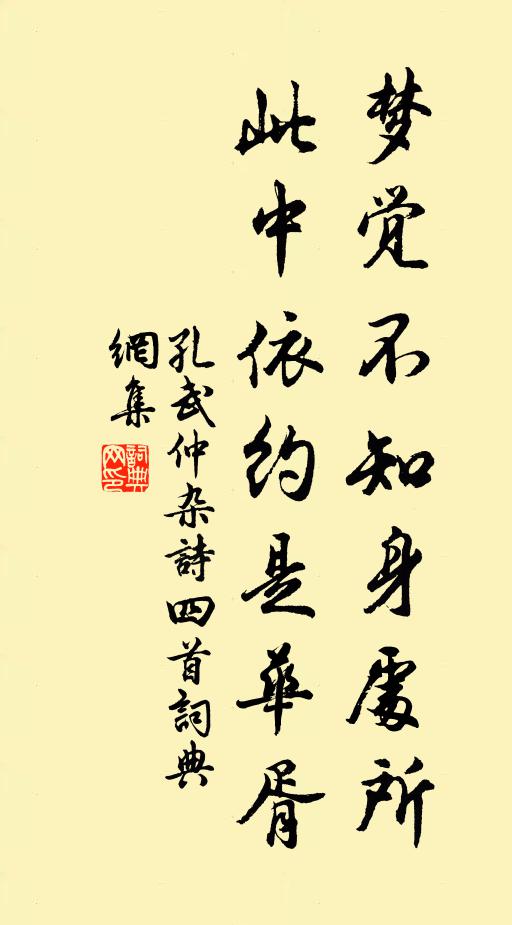 梦觉不知身處所
此中依约是華胥
孔武仲杂詩四首詞典
網集
詞典
网印